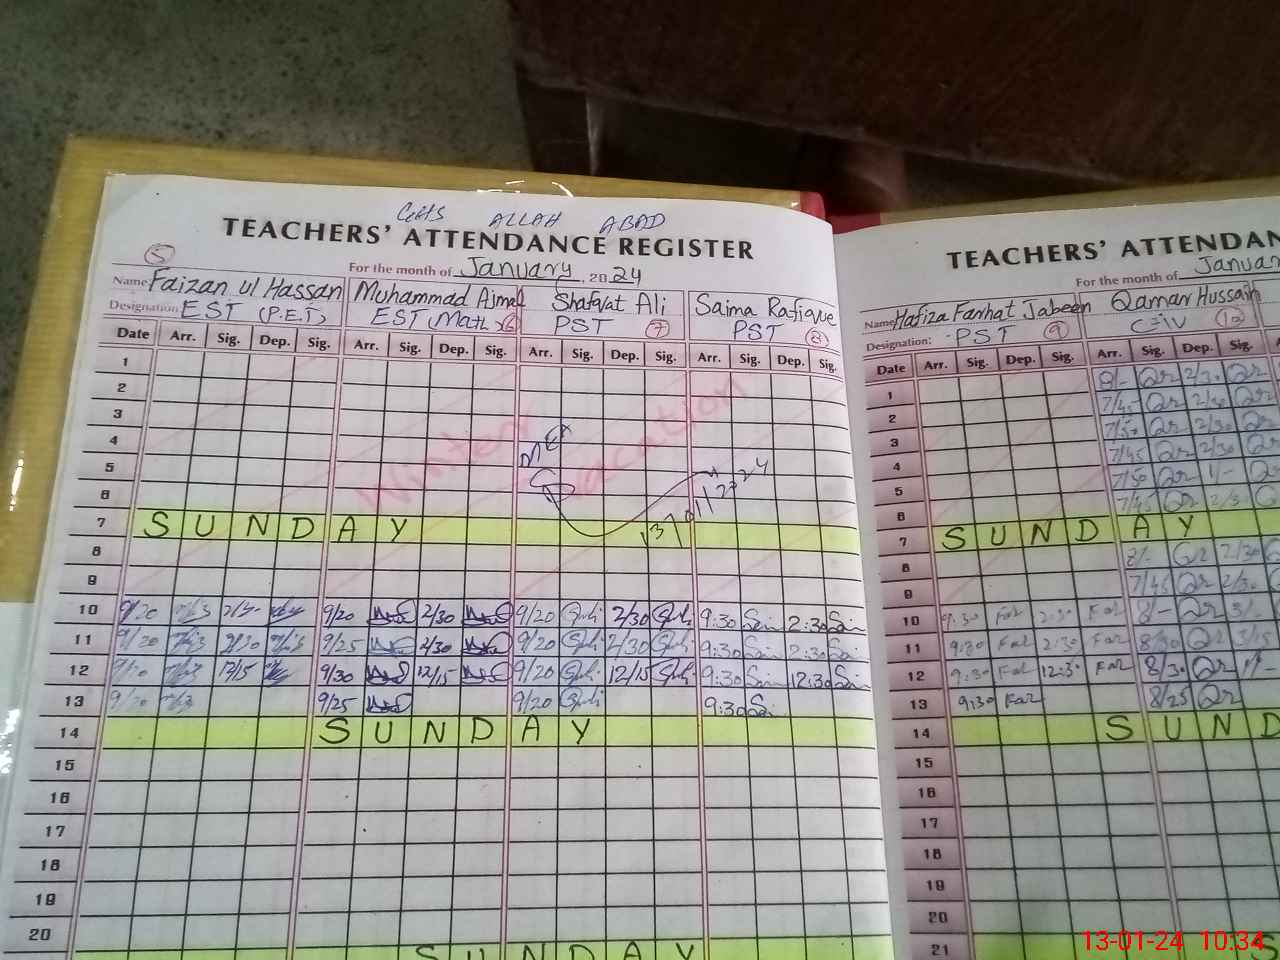 ALLAH ABAD
TEACHERS' ATTENDANCE REGISTER
5
For the month of January, 2024
Name Faizan ul Hassan Muhammad Ajmal Shafqat Ali Saima Rafique
Designation: EST (P.E.T) EST (Math) 6 PST 7 PST 8
Date Arr. Sig. Dep. Sig. Arr. Sig. Dep. Sig. Arr. Sig. Dep. Sig. Arr. Sig. Dep. Sig.
1
2
3
4
5
6
Winter Vacation
7 SUNDAY
8
9
10 9/20 9/20 2/30 9/20 2/30 9:30 2:30
11 9/20 2/30 9/25 2/30 9/20 2/30 9:30 2:30
12 12/15 9/30 12/15 9/20 12/15 9:30 12:30
13 9/20 9/25 9/20 9:30
14 SUNDAY
15
16
17
18
19
20
SUNDAY
TEACHERS' ATTENDAN
For the month of Januar
Name Hafiza Farhat Jabeen Qamar Hussain
Designation: PST 9
Date Arr. Sig. Dep. Sig. Arr. Sig. Dep. Sig.
1 8/- Qr 2/30 Qr
2 7/45 Qr 2/30 Qr
3 7/50 Qr 2/30 Qr
4 7/45 Qr 2/30 Qr
5 7/50 Qr 1/- Qr
6 7/45 Qr 2/30 Qr
7 SUNDAY
8 8/- Qr 2/30
9 7/45 Qr 2/30
10 9:30 Far 2:30 Far 8/- Qr
11 9:30 Far 2:30 Far 8/30 Qr 3/15
12 9:30 Far 12:30 Far 8/30 Qr
13 9:30 Far 8/25 Qr
14 SUND
15
16
17
18
19
20
21 S
13-01-24 10:34